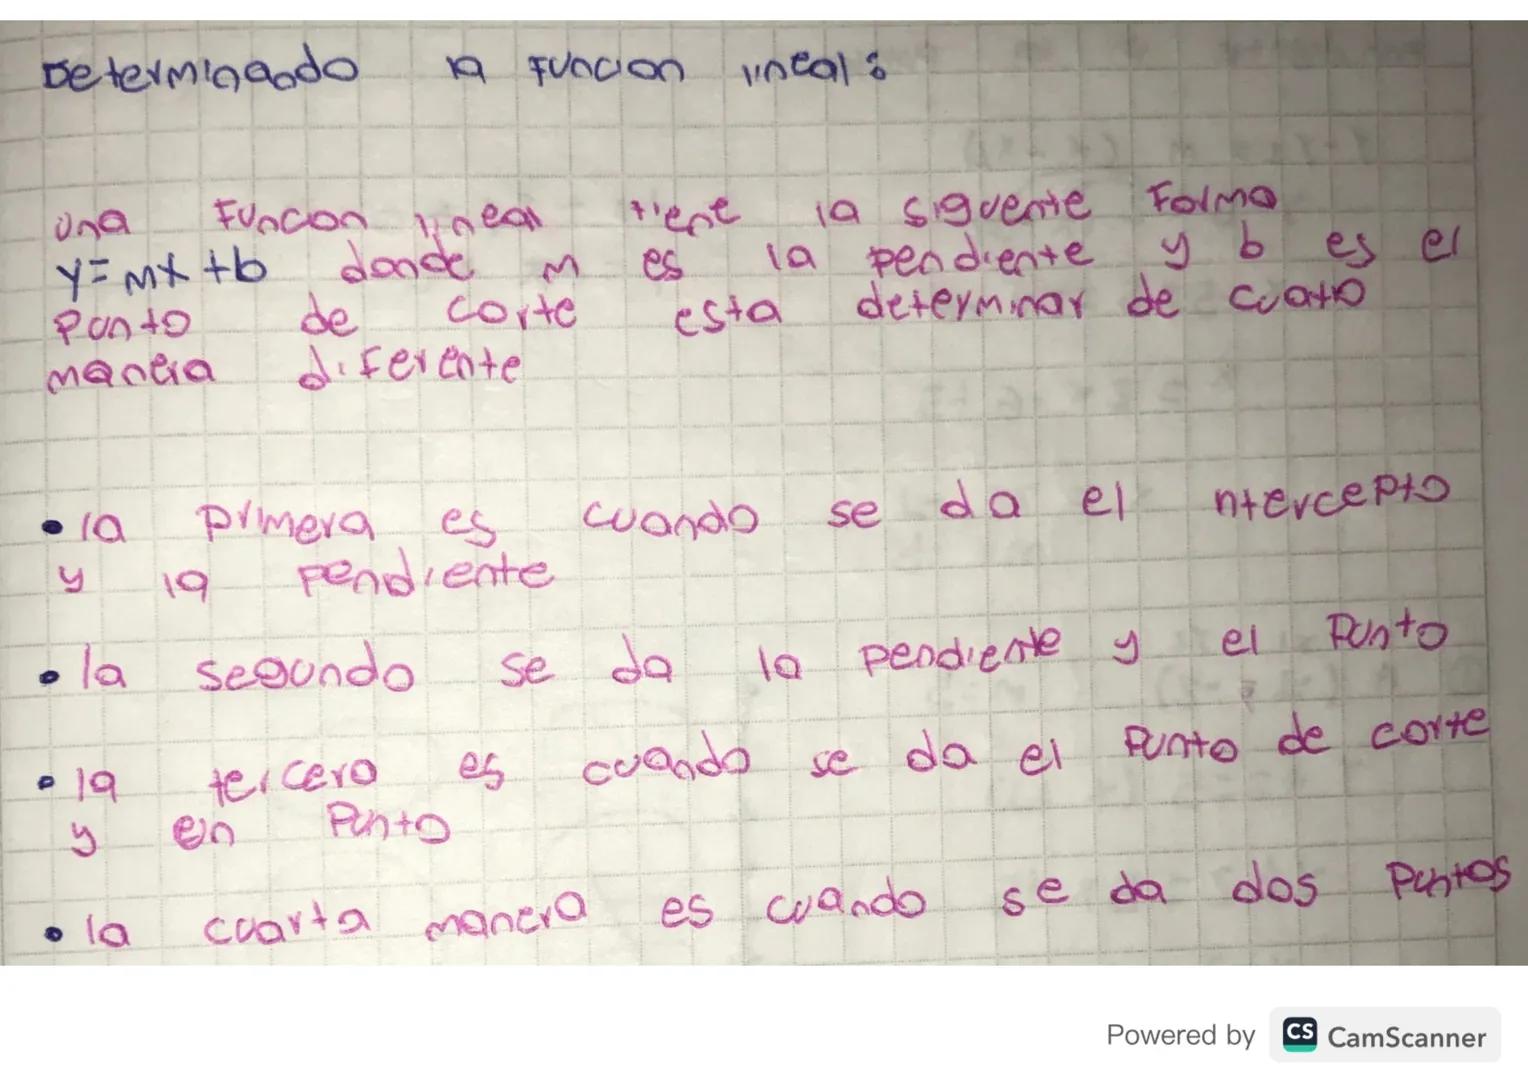 Determinaodo la Funcion lineal:
Una Funcon lineal tiene la siguente Forma
y=mx+b donde m es la pendiente y b es el
Punto de corte esta determinar de cuatro
manera diferente
• la primera es cuando se da el ntercepto
y la pendiente
• la segundo se da la pendiente y el Punto
• la tercero es cuando se da el Punto de corte
y ein Punto
• la cuarta manera es cuando se da dos Puntos
Powered by CS CamScanner